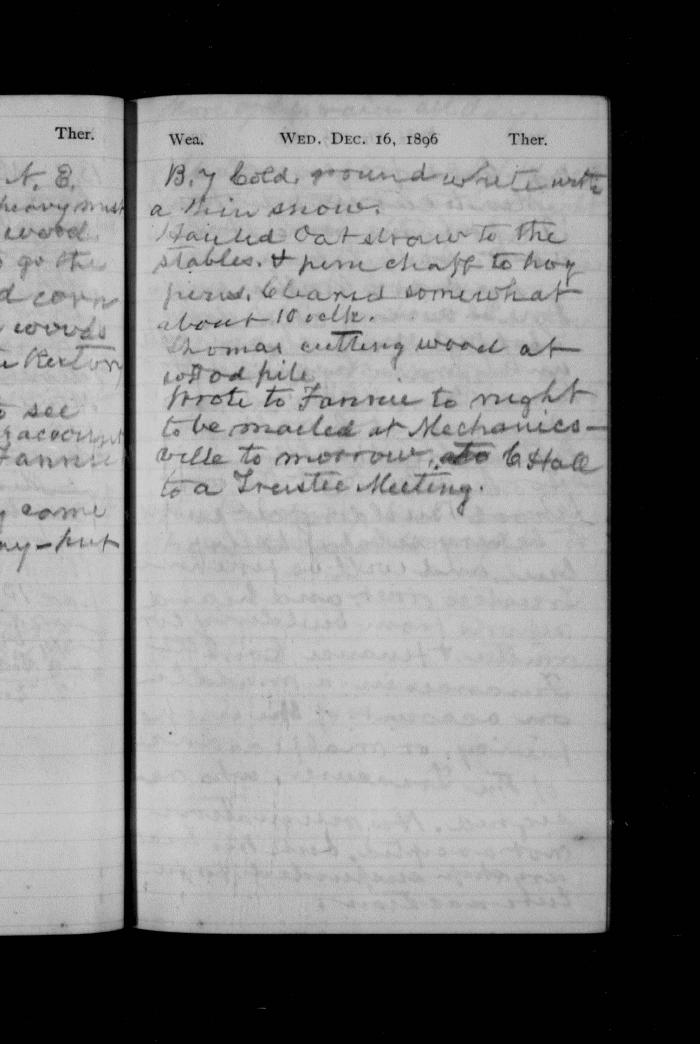 Ther.
N. E.
heavy mist
wood.
go the
d corn
woods
see
account
Fannie
came
ay - put
Wea. WED. DEC. 16, 1896 Ther.
B. 7 Cold. ground white with
a thin snow.
Hauled Oat straw to the
stables. & pine chaff to hog
pens. Cleared somewhat
about 10 oclk.
Thomas cutting wood at
wood pile
Wrote to Fannie to night
to be mailed at Mechanics-
ville to morrow, C Hall
to a Trustee Meeting.